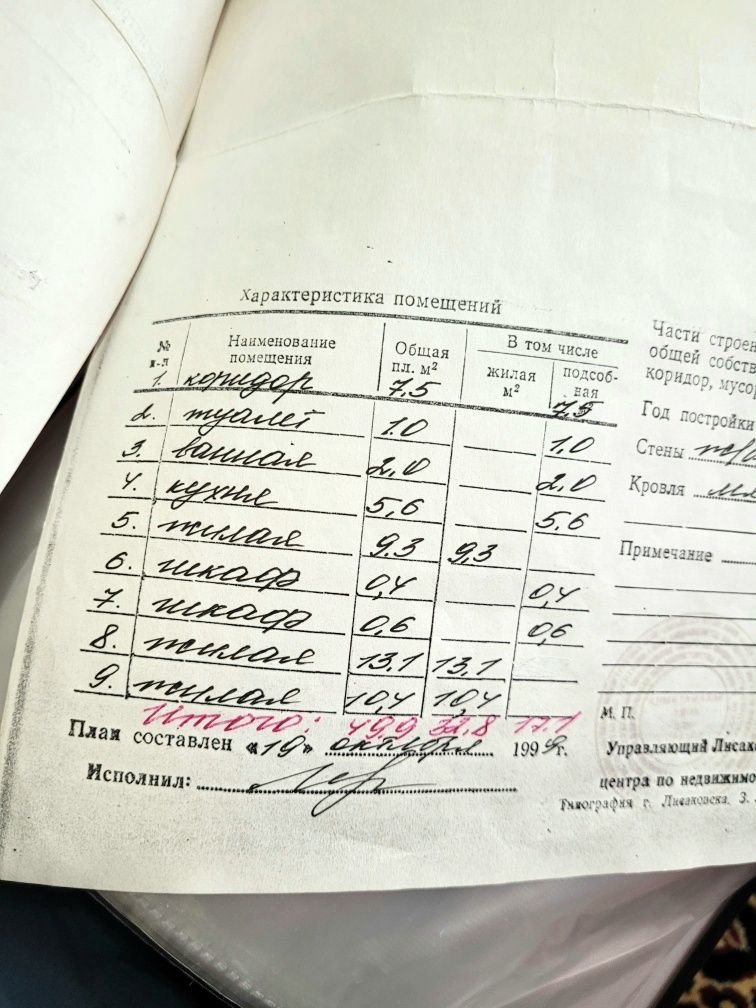 Характеристика помещений
№ п-п Наименование помещения Общая пл. м² В том числе жилая м² подсобная
1. коридор 7,5 7,5
2. туалет 1.0 1.0
3. ванная 2,0 2,0
4. кухня 5,6 5,6
5. жилая 9.3 9,3
6. шкаф 0,4 0,4
7. шкаф 0,6 0,6
8. жилая 13.1 13,1
9. жилая 10,4 10,4
Итого: 49,9 32,8 17.1
План составлен «19» октября 1999г.
Исполнил:
Части строен
общей собств
коридор, мусор
Год постройки
Стены
Кровля
Примечание
М. П.
Управляющий Лисак
центра по недвижимо
Типография г. Лисаковска, З.